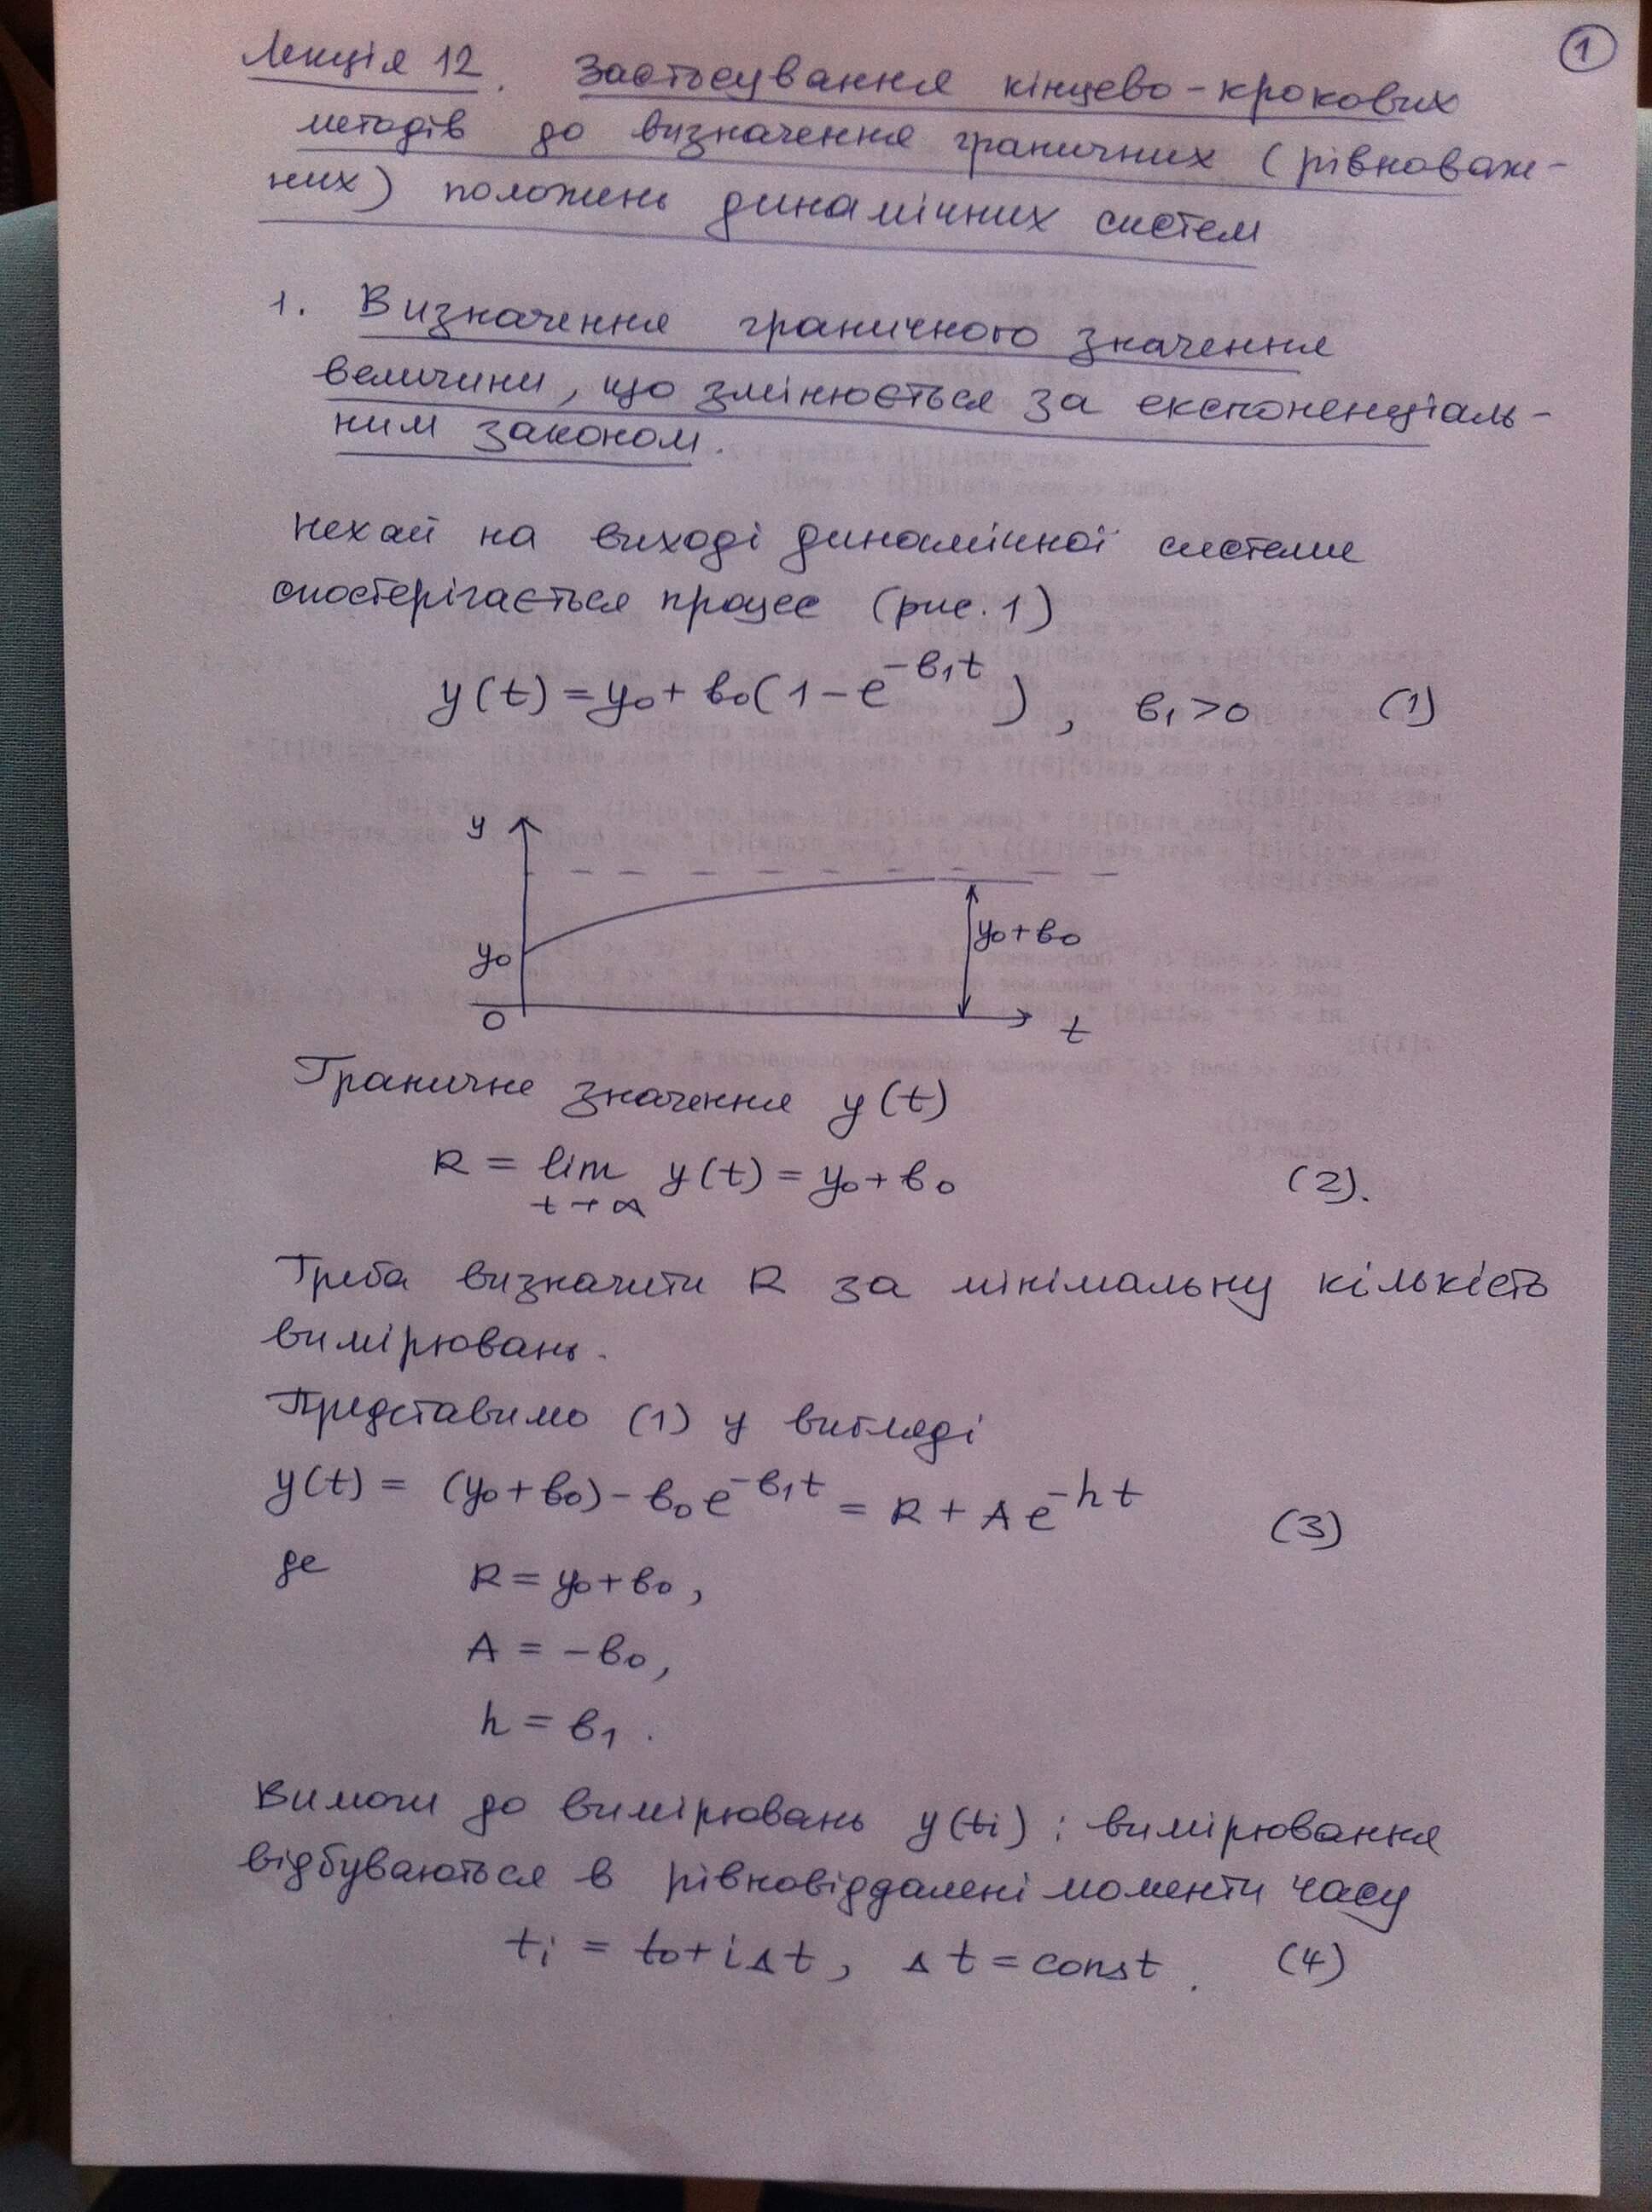 1
Лекція 12. Застосування кінцево-крокових
методів до визначення граничних (рівноваж-
них) положень динамічних систем
1. Визначення граничного значення
величини, що змінюється за експоненціаль-
ним законом.
Нехай на виході динамічної системи
спостерігається процес (рис. 1)
y(t) = y₀ + в₀(1 - e^{-в₁t}), в₁ > 0 (1)
y
y₀
y₀ + в₀
0
t
Граничне значення y(t)
R = lim y(t) = y₀ + в₀ (2).
t → ∞
Треба визначити R за мінімальну кількість
вимірювань.
Представимо (1) у вигляді
y(t) = (y₀ + в₀) - в₀e^{-в₁t} = R + Ae^{-ht} (3)
де R = y₀ + в₀,
A = -в₀,
h = в₁.
Вимоги до вимірювань y(tᵢ): вимірювання
відбуваються в рівновіддалені моменти часу
tᵢ = t₀ + iΔt, Δt = const. (4)